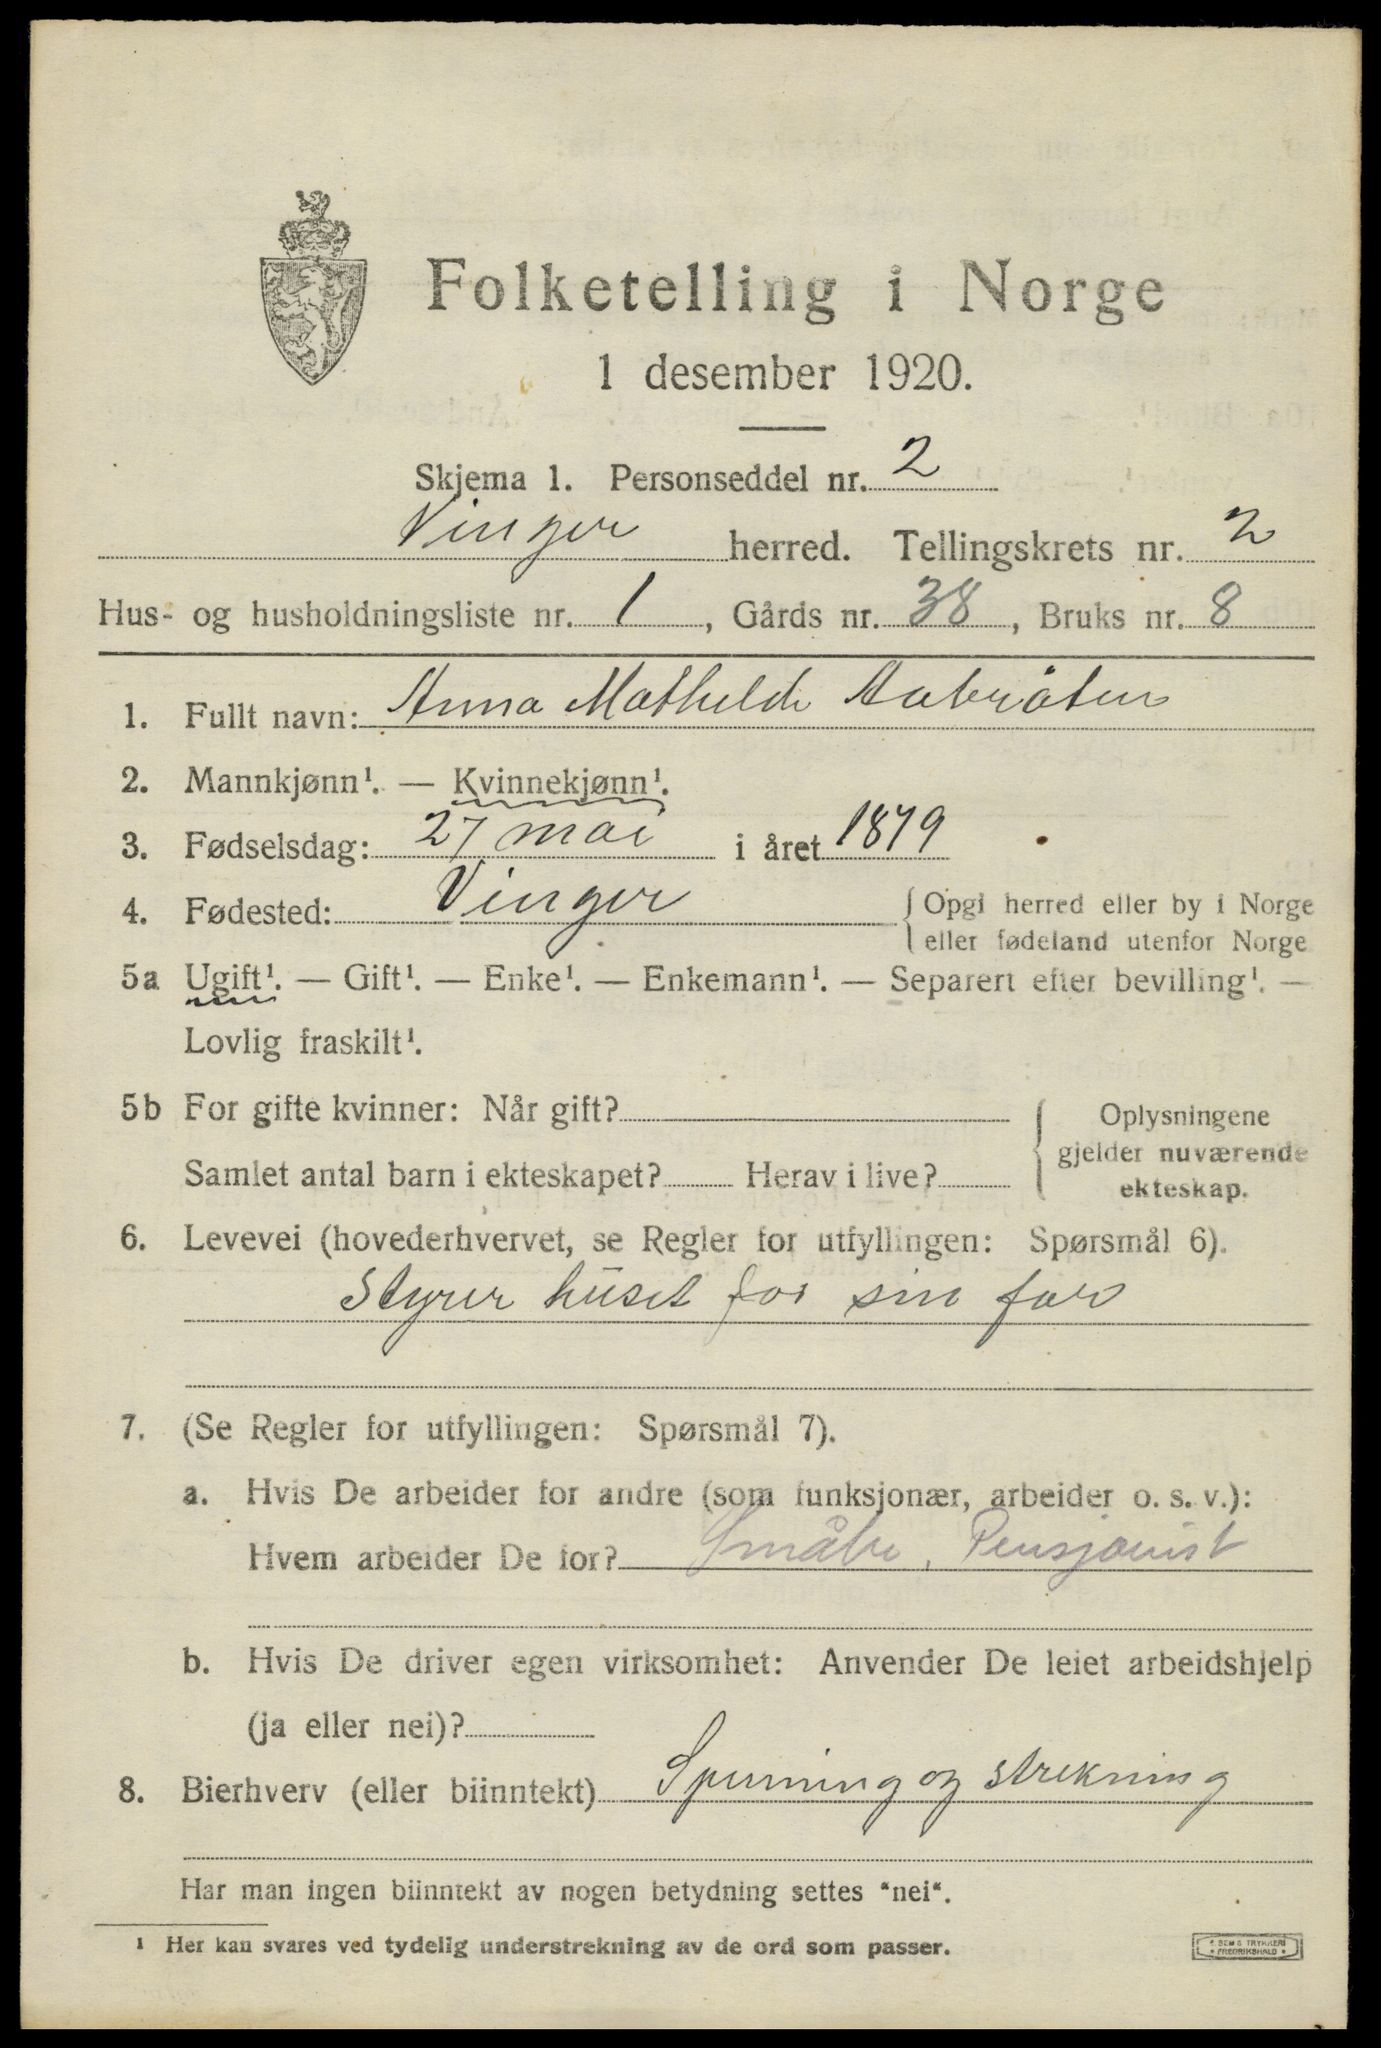 Folketelling i Norge
1 desember 1920.
Skjema 1. Personseddel nr. 2
Vinger herred. Tellingskrets nr. 2
Hus- og husholdningsliste nr. 1, Gårds nr. 38, Bruks nr. 8
1. Fullt navn: Anna Mathilde Aabråten
2. Mannkjønn¹. — Kvinnekjønn¹.
3. Fødselsdag: 27 mai i året 1879
4. Fødested: Vinger { Opgi herred eller by i Norge
eller fødeland utenfor Norge
5a Ugift¹. — Gift¹. — Enke¹. — Enkemann¹. — Separert efter bevilling¹. —
Lovlig fraskilt¹.
5b For gifte kvinner: Når gift? { Oplysningene
gjelder nuværende
Samlet antal barn i ekteskapet? Herav i live?
ekteskap.
6. Levevei (hovederhvervet, se Regler for utfyllingen: Spørsmål 6).
Styrer huset for sin far
7. (Se Regler for utfyllingen: Spørsmål 7).
a. Hvis De arbeider for andre (som funksjonær, arbeider o. s. v.):
Hvem arbeider De for? Småbr. Pensjonist
b. Hvis De driver egen virksomhet: Anvender De leiet arbeidshjelp
(ja eller nei)?
8. Bierhverv (eller biinntekt) Spinning og strikning
Har man ingen biinntekt av nogen betydning settes "nei".
¹ Her kan svares ved tydelig understrekning av de ord som passer.
SEMS TRYKKERI
FREDRIKSHALD